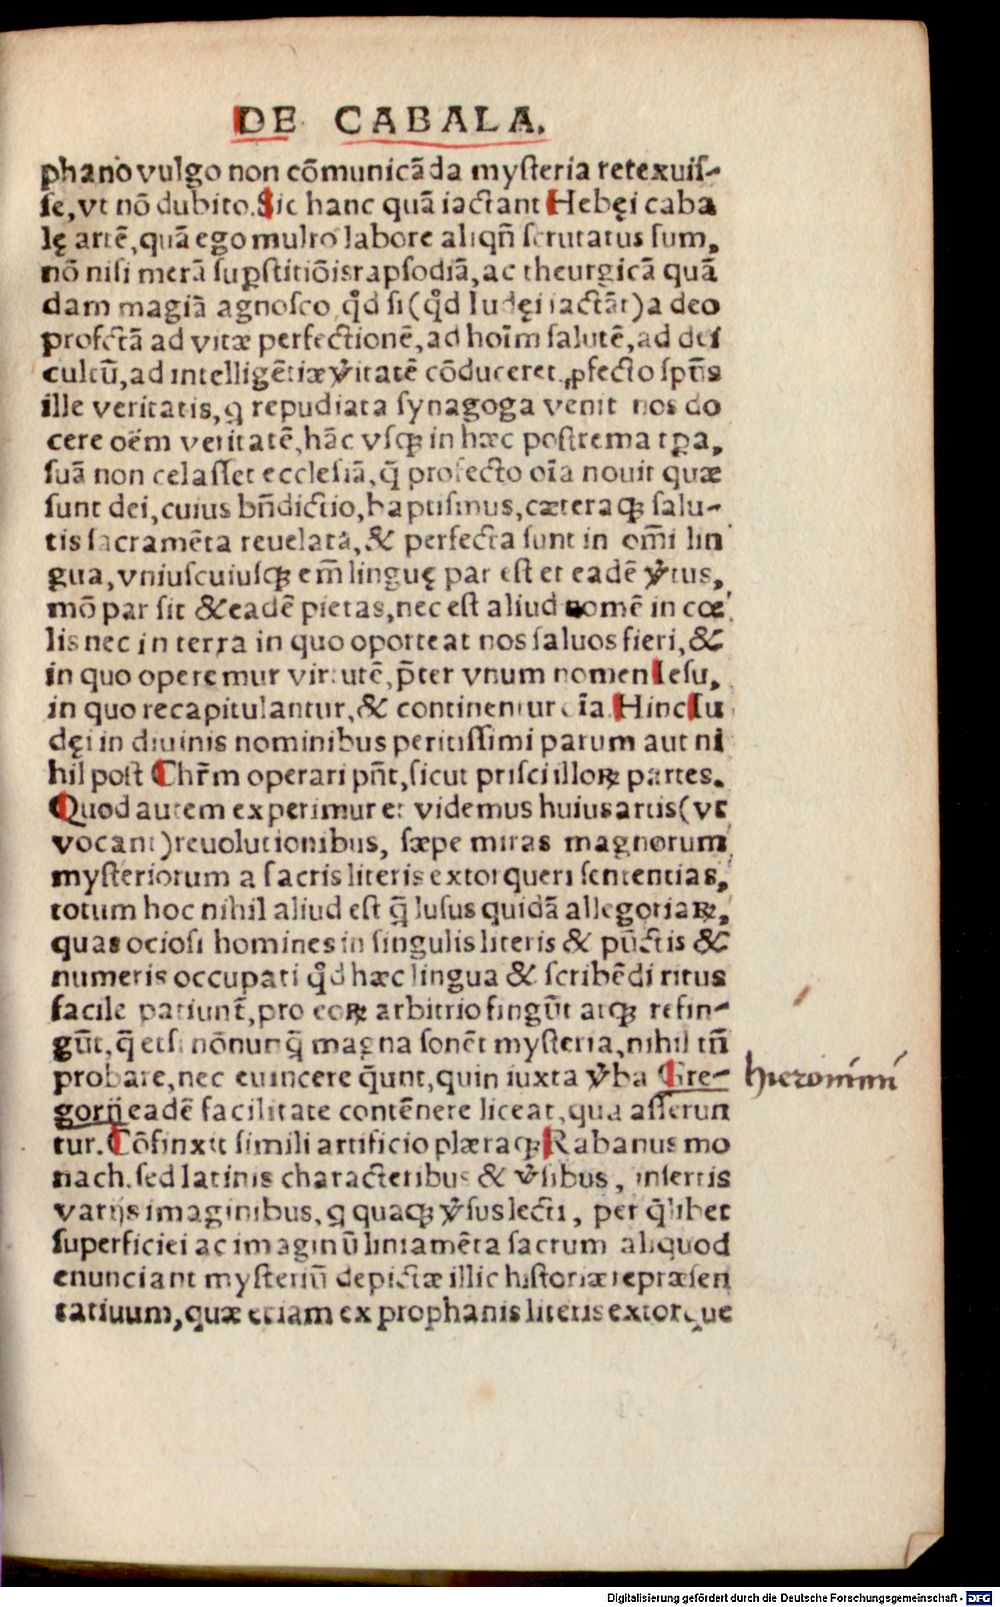 DE CABALA.
phano vulgo non cōmunicāda mysteria retexuis-
se, vt nō dubito. Sic hanc quā iactant Hebęi caba
lę artē, quā ego multo labore aliqñ scrutatus sum,
nō nisi merā suꝑstitiōis rapsodiā, ac theurgicā quā
dam magiā agnosco, qd̓ si (qd̓ Iudęi iactāt) a deo
profectā ad vitæ perfectionē, ad hoīm salutē, ad dei
cultū, ad intelligētiæ v̓itatē cōduceret, ꝓfecto spūs
ille veritatis, q repudiata synagoga venit nos do
cere oēm veritatē, hāc vsqꝫ in hæc postrema tꝑa,
suā non celasset ecclesiā, q̄ profecto oīa nouit quæ
sunt dei, cuius bñdictio, baptismus, cæteraqꝫ salu-
tis sacramēta reuelata, & perfecta sunt in omī lin
gua, vniuscuiusqꝫ em̄ linguę par est et eadē v̓tus,
mō par sit & eadē pietas, nec est aliud nomē in cœ
lis nec in terra in quo oporteat nos saluos fieri, &
in quo operemur virtutē, p̄ter vnum nomen Iesu,
in quo recapitulantur, & continentur oīa. Hinc Iu
dęi in diuinis nominibus peritissimi parum aut ni
hil post Chr̄m operari pn̄t, sicut prisci illoꝝ partes.
Quod autem experimur et videmus huius artis (vt
vocant) reuolutionibus, sæpe miras magnorum
mysteriorum a sacris literis extorqueri sententias,
totum hoc nihil aliud est q̄ lusus quidā allegoriaꝝ,
quas ociosi homines in singulis literis & pūctis &
numeris occupati qd̓ hæc lingua & scribēdi ritus
facile patiunt̄, pro eoꝝ arbitrio fingūt atqꝫ refin-
gūt, q̄ etsi nōnunq̄ magna sonēt mysteria, nihil tn̄
probare, nec euincere q̄unt, quin iuxta v̓ba Gre-
gorij eadē facilitate contēnere liceat, qua asserun
tur. Cōfinxit simili artificio plæraqꝫ Rabanus mo
nach. sed latinis characteribus & v̓sibus, insertis
varijs imaginibus, q quaqꝫ v̓sus lecti, per q̄libet
superficiei ac imaginū liniamēta sacrum aliquod
enunciant mysteriū depictæ illic historiæ repræsen
tatiuum, quæ etiam ex prophanis literis extorque
hieronimi
Digitalisierung gefördert durch die Deutsche Forschungsgemeinschaft - DFG